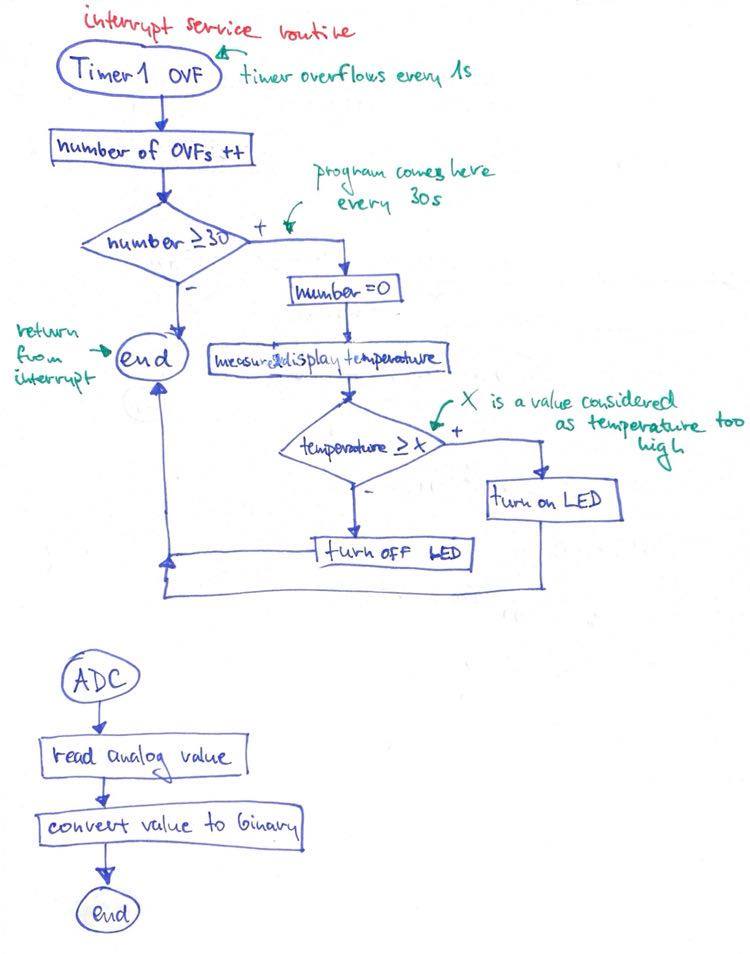 interrupt service routine
Timer1 OVF
timer overflows every 1s
number of OVFs ++
program comes here
every 30s
number ≥30
+
-
number =0
return
from
interrupt
end
measure&display temperature
X is a value considered
as temperature too
high
temperature ≥ X
+
-
turn on LED
turn OFF LED
ADC
read analog value
convert value to binary
end